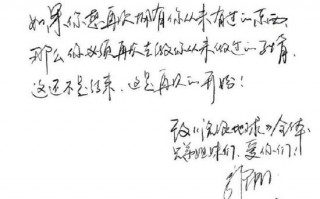 如果你想再次拥有你从来有过的东西
那么你必须再次去做你从来做过的事
这还不是结束，这是再次的开始！
致《流浪地球》全体
兄弟姐妹们，爱你们！